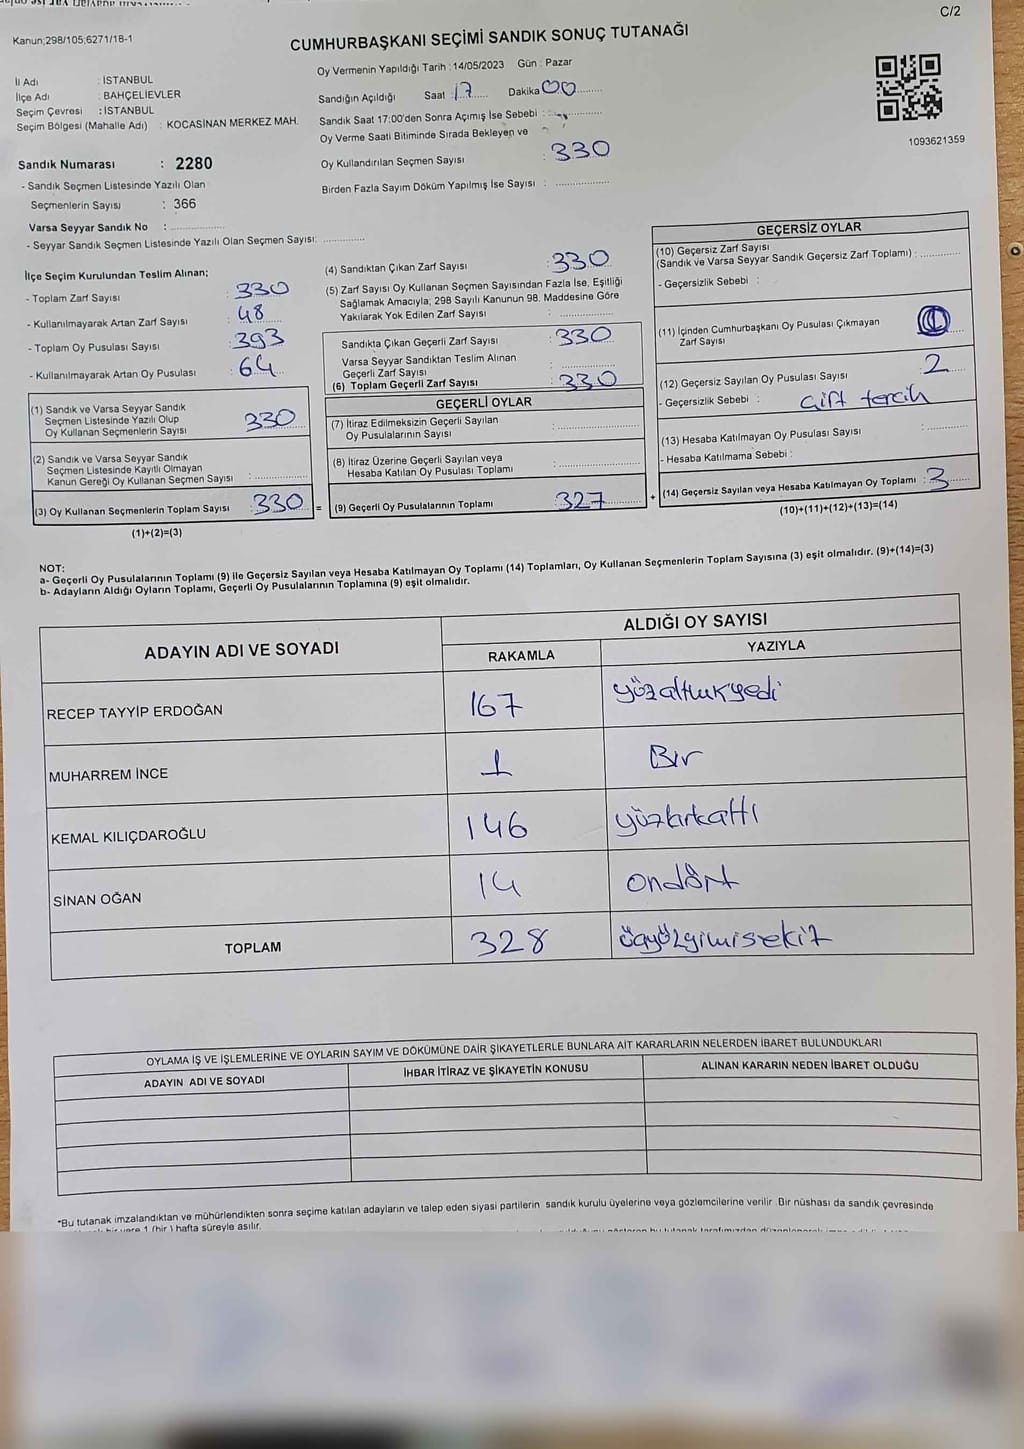 C/2
Kanun;298/105;6271/18-1
CUMHURBAŞKANI SEÇİMİ SANDIK SONUÇ TUTANAĞI
İl Adı : İSTANBUL
İlçe Adı : BAHÇELİEVLER
Seçim Çevresi : İSTANBUL
Seçim Bölgesi (Mahalle Adı) : KOCASİNAN MERKEZ MAH.
Oy Vermenin Yapıldığı Tarih : 14/05/2023 Gün : Pazar
Sandığın Açıldığı Saat : 17 Dakika 00
Sandık Saat 17:00'den Sonra Açımış İse Sebebi :
Oy Verme Saati Bitiminde Sırada Bekleyen ve
Oy Kullandırılan Seçmen Sayısı : 330
Birden Fazla Sayım Döküm Yapılmış İse Sayısı :
1093621359
Sandık Numarası : 2280
- Sandık Seçmen Listesinde Yazılı Olan
Seçmenlerin Sayısı : 366
Varsa Seyyar Sandık No :
- Seyyar Sandık Seçmen Listesinde Yazılı Olan Seçmen Sayısı:
İlçe Seçim Kurulundan Teslim Alınan;
- Toplam Zarf Sayısı : 330
- Kullanılmayarak Artan Zarf Sayısı : 48
- Toplam Oy Pusulası Sayısı : 393
- Kullanılmayarak Artan Oy Pusulası : 64
(1) Sandık ve Varsa Seyyar Sandık
Seçmen Listesinde Yazılı Olup
Oy Kullanan Seçmenlerin Sayısı 330
(2) Sandık ve Varsa Seyyar Sandık
Seçmen Listesinde Kayıtlı Olmayan
Kanun Gereği Oy Kullanan Seçmen Sayısı :
(3) Oy Kullanan Seçmenlerin Toplam Sayısı : 330 =
(1)+(2)=(3)
(4) Sandıktan Çıkan Zarf Sayısı : 330
(5) Zarf Sayısı Oy Kullanan Seçmen Sayısından Fazla İse, Eşitliği
Sağlamak Amacıyla; 298 Sayılı Kanunun 98. Maddesine Göre
Yakılarak Yok Edilen Zarf Sayısı :
Sandıkta Çıkan Geçerli Zarf Sayısı : 330
Varsa Seyyar Sandıktan Teslim Alınan
Geçerli Zarf Sayısı :
(6) Toplam Geçerli Zarf Sayısı : 330
GEÇERLİ OYLAR
(7) İtiraz Edilmeksizin Geçerli Sayılan
Oy Pusulalarının Sayısı :
(8) İtiraz Üzerine Geçerli Sayılan veya
Hesaba Katılan Oy Pusulası Toplamı :
(9) Geçerli Oy Pusulalarının Toplamı : 327 +
GEÇERSİZ OYLAR
(10) Geçersiz Zarf Sayısı
(Sandık ve Varsa Seyyar Sandık Geçersiz Zarf Toplamı) :
- Geçersizlik Sebebi :
(11) İçinden Cumhurbaşkanı Oy Pusulası Çıkmayan
Zarf Sayısı : 1
(12) Geçersiz Sayılan Oy Pusulası Sayısı : 2
- Geçersizlik Sebebi : Çift tercih
(13) Hesaba Katılmayan Oy Pusulası Sayısı :
- Hesaba Katılmama Sebebi :
(14) Geçersiz Sayılan veya Hesaba Katılmayan Oy Toplamı : 3
(10)+(11)+(12)+(13)=(14)
NOT:
a- Geçerli Oy Pusulalarının Toplamı (9) ile Geçersiz Sayılan veya Hesaba Katılmayan Oy Toplamı (14) Toplamları, Oy Kullanan Seçmenlerin Toplam Sayısına (3) eşit olmalıdır. (9)+(14)=(3)
b- Adayların Aldığı Oyların Toplamı, Geçerli Oy Pusulalarının Toplamına (9) eşit olmalıdır.
ADAYIN ADI VE SOYADI ALDIĞI OY SAYISI
RAKAMLA YAZIYLA
RECEP TAYYİP ERDOĞAN 167 yüzaltmışyedi
MUHARREM İNCE 1 Bir
KEMAL KILIÇDAROĞLU 146 yüzkırkaltı
SİNAN OĞAN 14 ondört
TOPLAM 328 üçyüzyirmisekiz
OYLAMA İŞ VE İŞLEMLERİNE VE OYLARIN SAYIM VE DÖKÜMÜNE DAİR ŞİKAYETLERLE BUNLARA AİT KARARLARIN NELERDEN İBARET BULUNDUKLARI
ADAYIN ADI VE SOYADI İHBAR İTİRAZ VE ŞİKAYETİN KONUSU ALINAN KARARIN NEDEN İBARET OLDUĞU
*Bu tutanak imzalandıktan ve mühürlendikten sonra seçime katılan adayların ve talep eden siyasi partilerin sandık kurulu üyelerine veya gözlemcilerine verilir. Bir nüshası da sandık çevresinde
bir yere 1 (bir) hafta süreyle asılır.